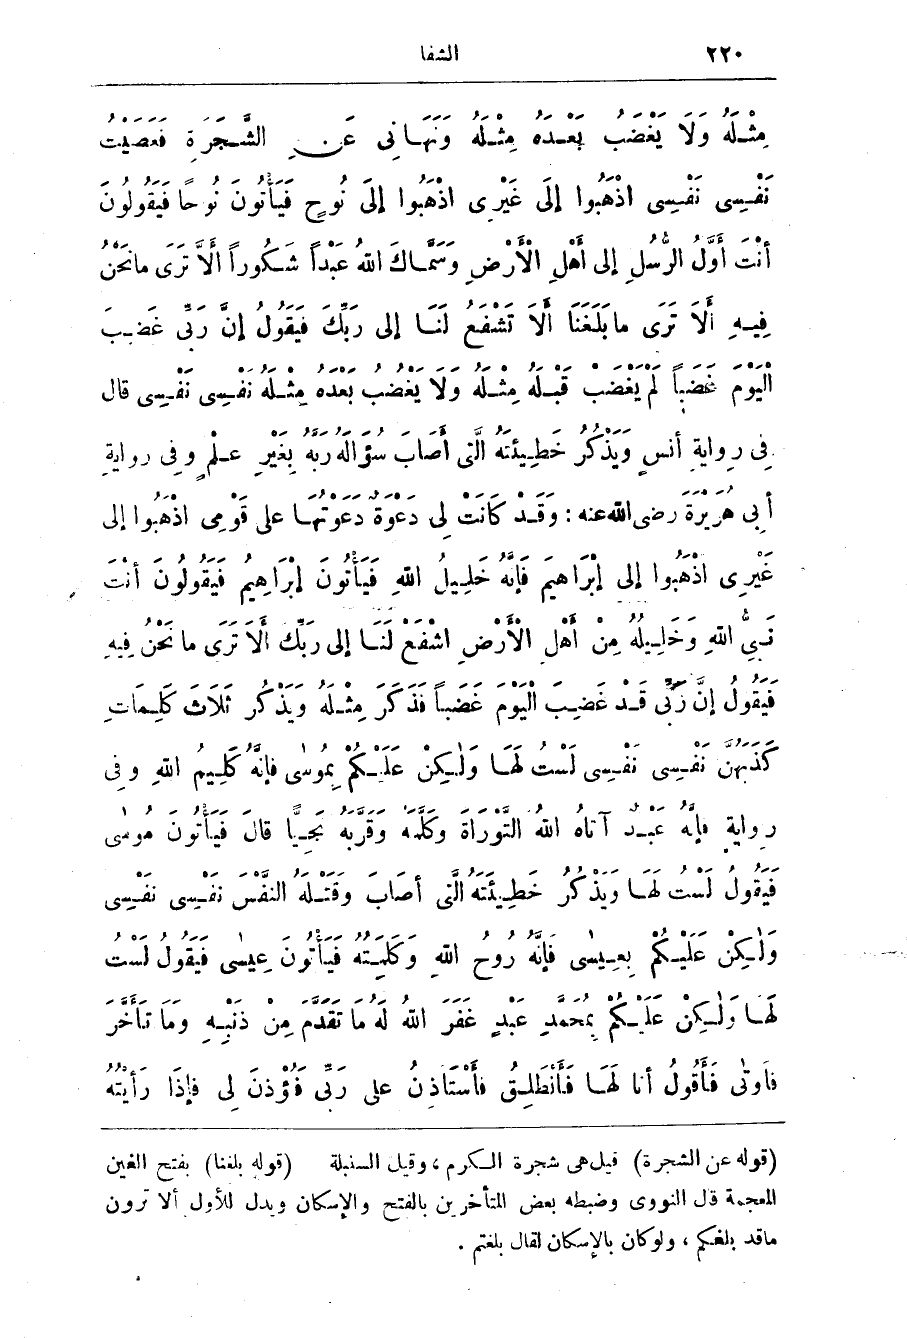 ٢٢٠ الشفا
مِثْلَهُ وَلَا يَغْضَبُ بَعْدَهُ مِثْلَهُ وَنَهَانِى عَنِ الشَّجَرَةِ فَعَصَيْتُ
نَفْسِى نَفْسِى اذْهَبُوا إِلَى غَيْرِى اذْهَبُوا إِلَى نُوحٍ فَيَأْتُونَ نُوحًا فَيَقُولُونَ
أَنْتَ أَوَّلُ الرُّسُلِ إِلى أَهْلِ الْأَرْضِ وَسَمَّاكَ اللهُ عَبْداً شَكُوراً أَلَا تَرَى مَا نَحْنُ
فِيهِ أَلَا تَرَى مَا بَلَغَنَا أَلَا تَشْفَعُ لَنَا إِلى رَبِّكَ فَيَقُولُ إِنَّ رَبِّى غَضِبَ
الْيَوْمَ غَضَباً لَمْ يَغْضَبْ قَبْلَهُ مِثْلَهُ وَلَا يَغْضَبُ بَعْدَهُ مِثْلَهُ نَفْسِى نَفْسِى قال
فِى رِوايةِ أنسٍ وَيَذْكُرُ خَطِيئَتَهُ الَّتِى أَصَابَ سُؤَالَهُ رَبَّهُ بِغَيْرِ عِلْمٍ وفِى رِوايةِ
أَبِى هُرَيْرَةَ رضى الله عنه : وَقَدْ كَانَتْ لِى دَعْوَةٌ دَعَوْتُهَا عَلى قَوْمِى اذْهَبُوا إِلى
غَيْرِى اذْهَبُوا إِلى إِبْرَاهِيمَ فَإِنَّهُ خَلِيلُ اللهِ فَيَأْتُونَ إِبْرَاهِيمَ فَيَقُولُونَ أَنْتَ
نَبِىُّ اللهِ وَخَلِيلُهُ مِنْ أَهْلِ الْأَرْضِ اشْفَعْ لَنَا إِلى رَبِّكَ أَلَا تَرَى مَا نَحْنُ فِيهِ
فَيَقُولُ إِنَّ رَبِّى قَدْ غَضِبَ الْيَوْمَ غَضَباً فَذَكَرَ مِثْلَهُ وَيَذْكُرُ ثَلَاثَ كَلِمَاتٍ
كَذَبَهُنَّ نَفْسِى نَفْسِى لَسْتُ لَهَا وَلٰكِنْ عَلَيْكُمْ بِمُوسٰى فَإِنَّهُ كَلِيمُ اللهِ وفِى
روايةٍ فإنَّهُ عَبْدٌ آتَاهُ اللهُ التَّوْرَاةَ وَكَلَّمَهُ وَقَرَّبَهُ نَجِيًّا قالَ فَيَأْتُونَ مُوسٰى
فَيَقُولُ لَسْتُ لَهَا وَيَذْكُرُ خَطِيئَتَهُ الَّتِى أَصَابَ وَقَتْلَهُ النَّفْسَ نَفْسِى نَفْسِى
وَلٰكِنْ عَلَيْكُمْ بِعِيسٰى فَإِنَّهُ رُوحُ اللهِ وَكَلِمَتُهُ فَيَأْتُونَ عِيسٰى فَيَقُولُ لَسْتُ
لَهَا وَلٰكِنْ عَلَيْكُمْ بِمُحَمَّدٍ عَبْدٍ غَفَرَ اللهُ لَهُ مَا تَقَدَّمَ مِنْ ذَنْبِهِ وَمَا تَأَخَّرَ
فَأُوتٰى فَأَقُولُ أَنا لَهَا فَأَنْطَلِقُ فَأَسْتَأْذِنُ عَلى رَبِّى فَيُؤْذَنُ لِى فَإِذَا رَأَيْتُهُ
(قوله عن الشجرة) قيل هى شجرة الكرم ، وقيل السنبلة (قوله بلغنا) بفتح الغين
المعجمة قال النووى وضبطه بعض المتأخرين بالفتح والإسكان ويدل للأول ألا ترون
ماقد بلغكم ، ولوكان بالإسكان لقال بلغتم .